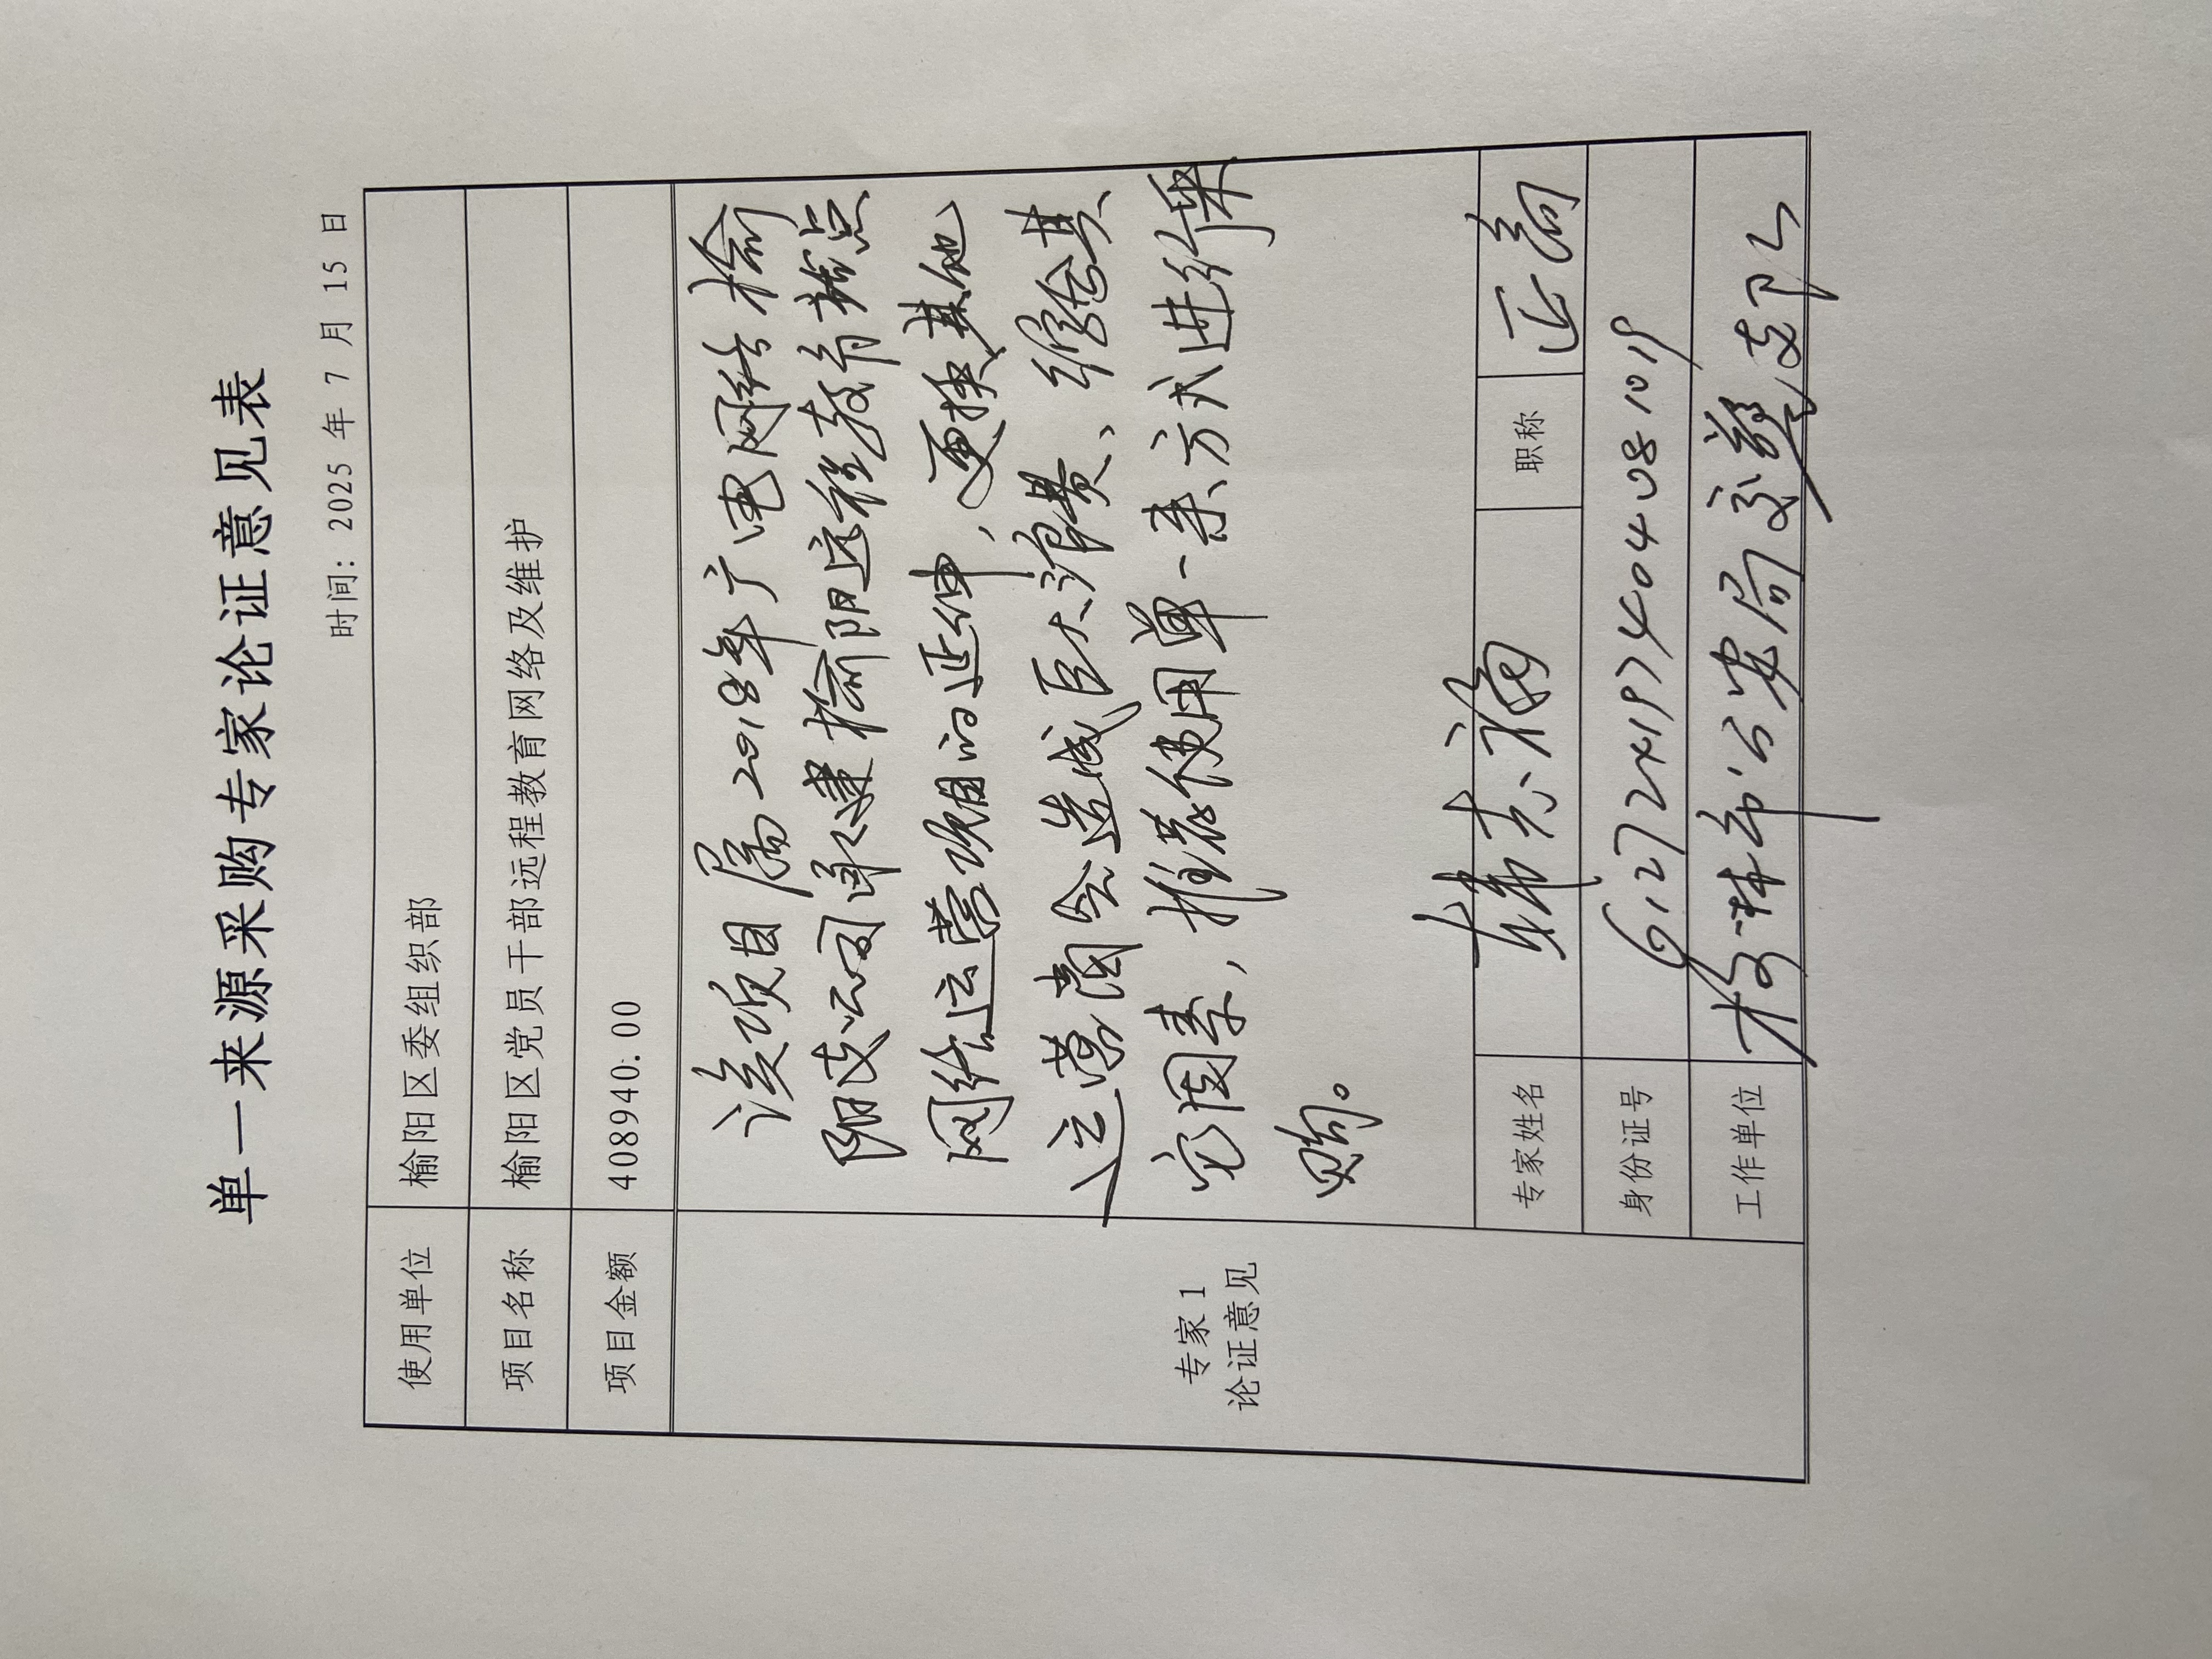 单一来源采购专家论证意见表
时间: 2025 年 7 月 15 日
使用单位 榆阳区委组织部
项目名称 榆阳区党员干部远程教育网络及维护
项目金额 408940.00
专家 1
论证意见
该项目属2018年广电网络榆
阳支公司承建榆阳远程教育站点
网络运营项目的延伸，更换其他
运营商会造成巨大浪费、综合其
它因素，推荐使用单一来源方式进行采
购。
专家姓名 职称 正高
身份证号
工作单位 榆林市公安局交警支队